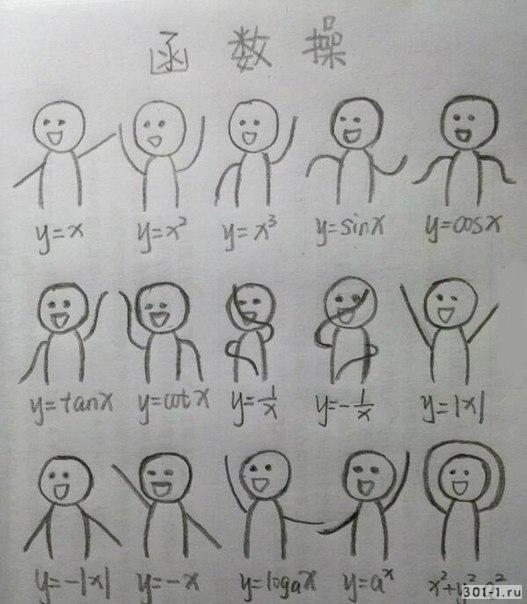 函数操
y=x y=x² y=x³ y=sinx y=cosx
y=tanx y=cotx y=1/x y=-1/x y=|x|
y=-|x| y=-x y=logax y=aˣ x²+y²=a²
301-1.ru